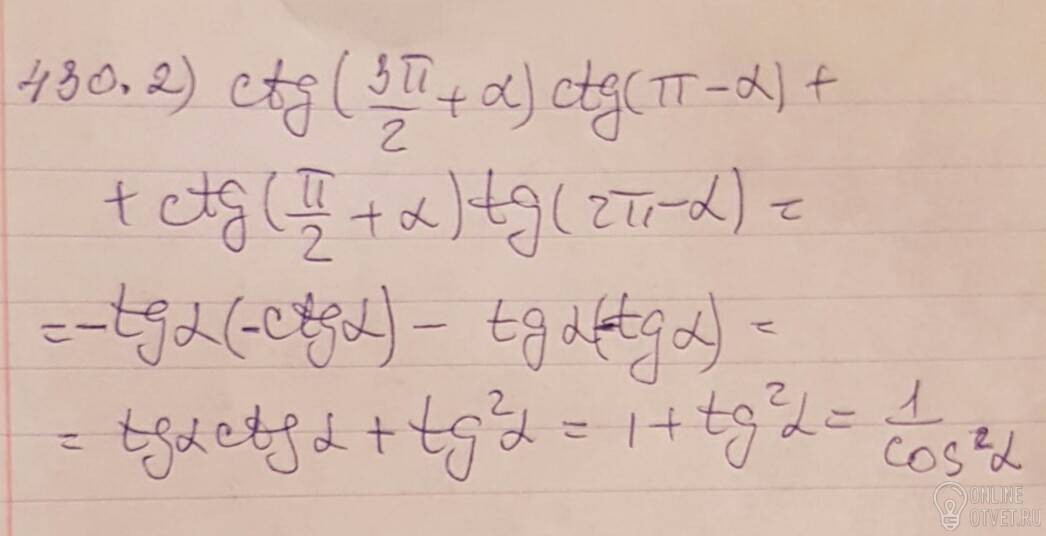 430. 2) ctg(3π/2 + α) ctg(π - α) +
+ ctg(π/2 + α) tg(2π - α) =
= -tg α(-ctg α) - tg α(-tg α) =
= tg α ctg α + tg² α = 1 + tg² α = 1/cos² α
ONLINE
OTVET.RU